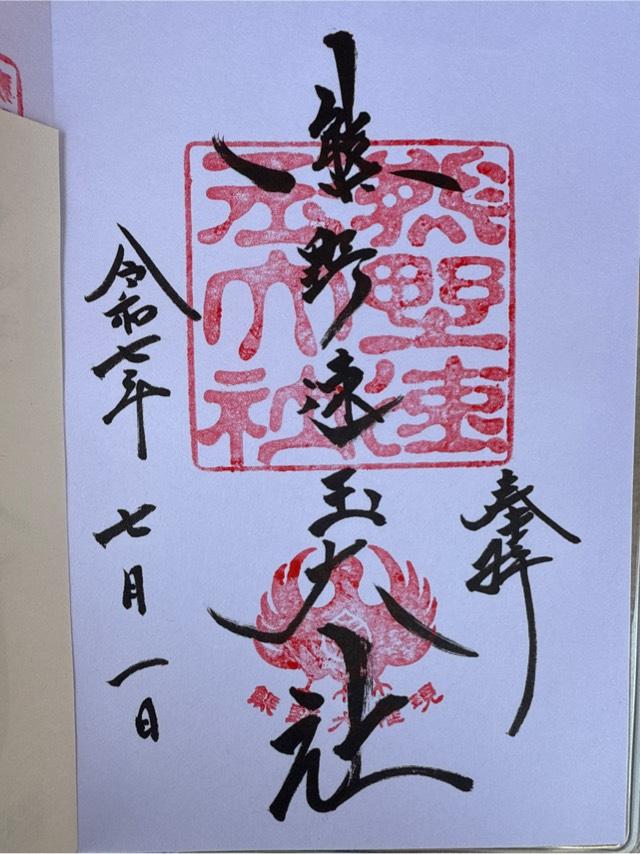 奉拝
熊野速玉大社
熊野速玉大社
熊野大権現
令和七年 七月 一日